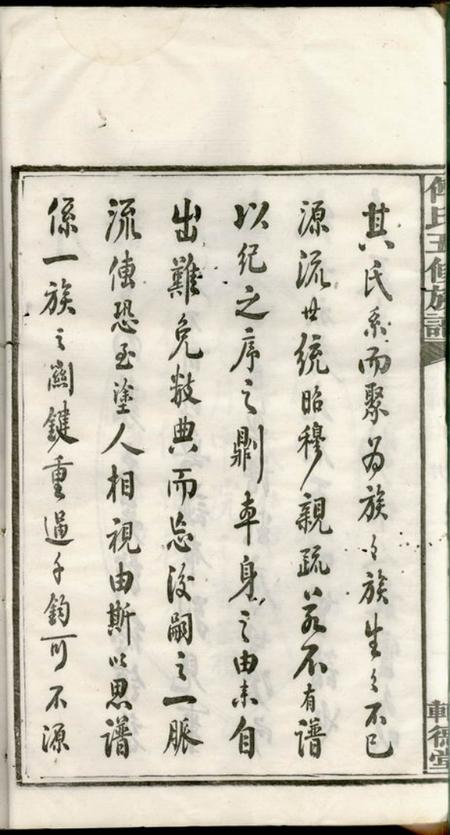 氏五修族譜
軒德堂
其氏系而聚為族々族生々不已
源流世統昭穆親疏若不有譜
以紀之序之則本身之由来自
出難免数典而忘後嗣之一脈
流傳恐至塗人相視由斯以思譜
係一族之關鍵重逾千鈞可不源